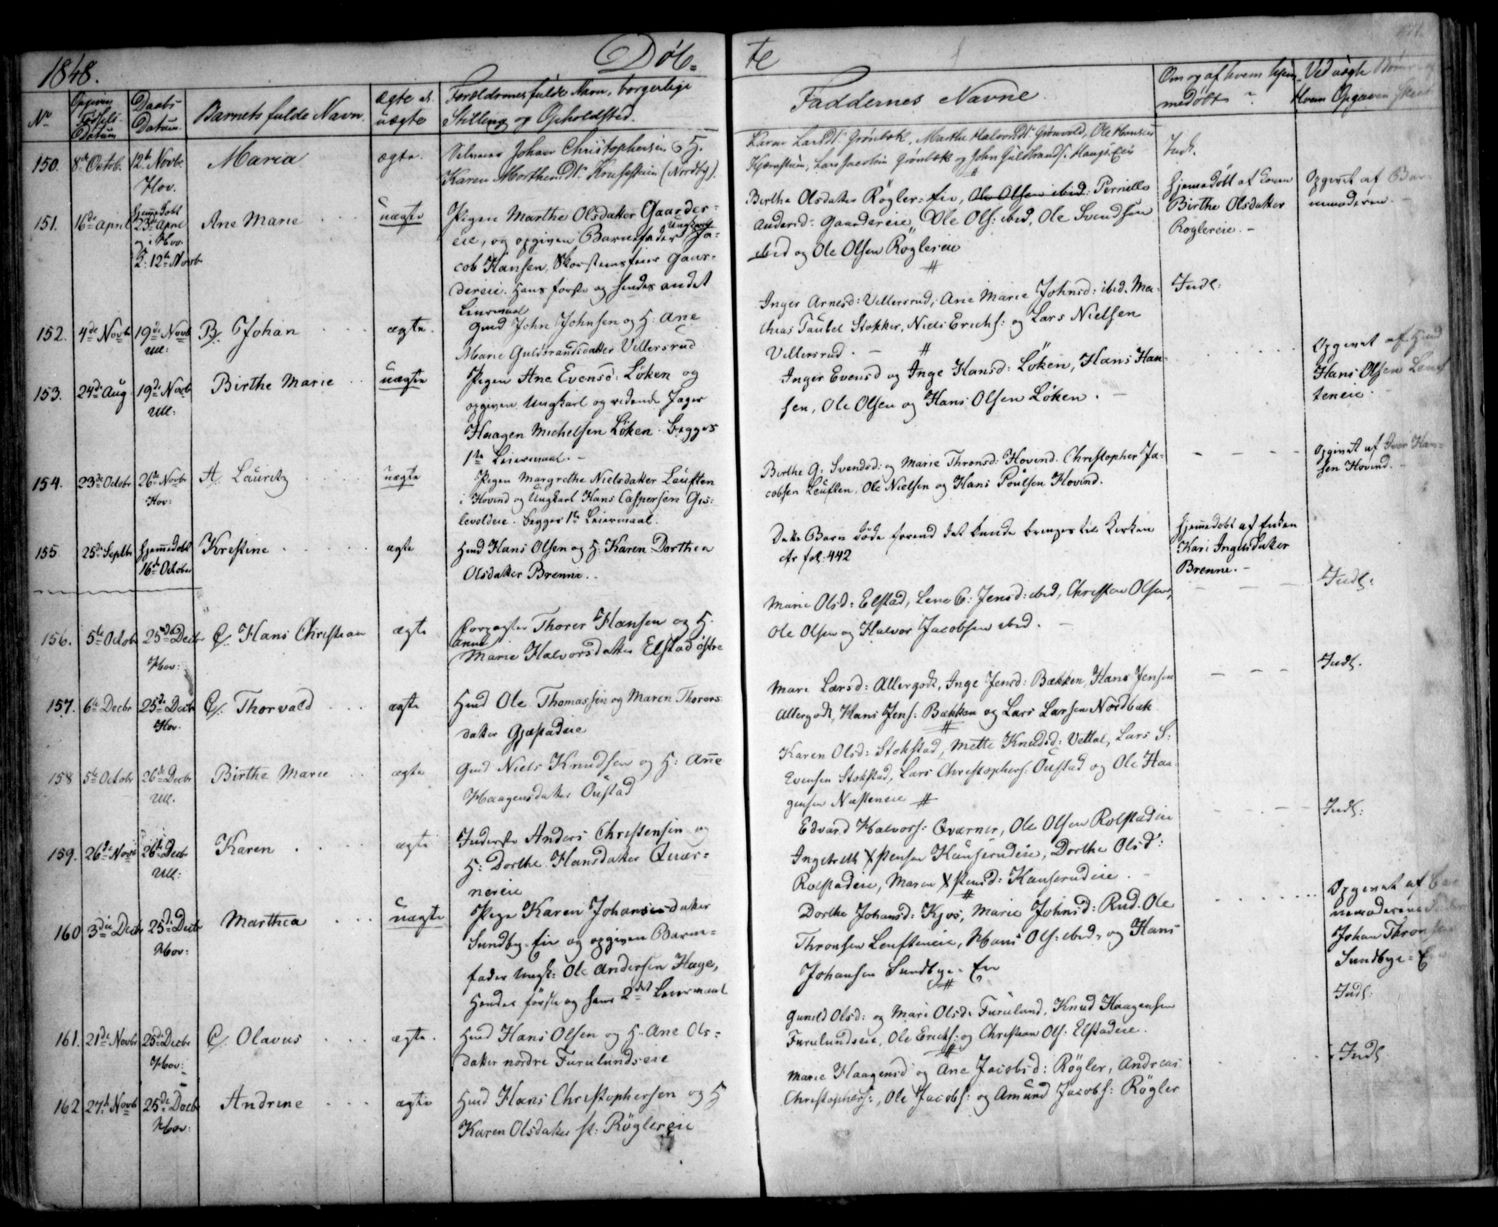 1848.
Døb-
te
No
Opgiven Fødsels Datum
Daabs Datum.
Barnets fulde Navn.
Ægte el. uægte
Forældrenes fulde Navn, borgerlige
Stilling og Opholdsted.
Faddernes Navne.
Om og af hvem hjem-
medøbt
Ved uægte
hvem Opgaven skeet
150. 8de Octob. 12te Novbr Hov. Maria ægte.
Selveier Johan Christophersen & H.
Karen Morthensdtr. (Nordby).
Maren Larsdtr Grønbæk, Marthe Halvorsdtr Grønvold, Ole Hansen
Lars Jacobsen Grønbæk og John Gulbrands.
Indl.
151. 16de April Hjemmedøbt 23de April og i Hov. K. 12te Novbr Ane Marie uægte
Pigen Marthe Olsdatter Gaarder-
eie, og opgiven Barnefader Ungkarl Ja-
cob Hansen, Gaar-
dereie. Hans første og hendes andet
Leiermaal
Birthe Olsdatter Røgler-Eie, Ole Olsen ibid: Pernille
Andersd: Gaardereie, Ole Ols: ibid, Ole Svendsen
ibid og Ole Olsen Røglereie
Hjemmedøbt af Konen
Birthe Olsdatter
Røglereie.-
Opgivet af Bar-
nemoderen.
152. 4de Novbr 19de Novbr Ull: B. Johan ægte.
Gmd John Johnsen og H. Ane
Marie Gulbrandsdatter Vellersrud
Inger Arnesd: Vellersrud, Ane Marie Johnsd: ibid. Ma-
thias Taubol Stokker, Niels Erichs: og Lars Nielsen
Vellersrud.
Indl:
153. 24de Aug 19de Novbr Ull: Birthe Marie uægte
Pigen Ane Evensd: Løken og
opgiven Ungkarl og ridende Jæger
Haagen Michelsen Løken. Begges
1ste Leiermaal.-
Inger Evensd og Inge Hansd: Løken, Hans Han-
sen, Ole Olsen og Hans Olsen Løken.
Opgivet af Hmd
Hans Olsen
teneie.
154. 23de Octobr 26de Novbr Hov: A. Lauritz uægte
Pigen Margrethe Nielsdatter Leuften
i Hovind og Ungkarl Hans Caspersen Gis-
levoldeie. begges 1ste Leiermaal.
Birthe G. Svendsd: og Marie Thronsd: Hovind. Christopher Ja-
cobsen Leuften, Ole Nielsen og Hans Poulsen Hovind.
Opgivet af Iver Han-
sen Hovind.
155 25de Septbr Hjemmedøbt 16de Octobr Kirstine ægte
Hmd Hans Olsen og H. Karen Dorthea
Olsdatter Brenne.
Dette Barn døde forend det kunde bringes til Kirken
cfr fol. 442
Hjemmedøbt af Enken
Kari Ingelsdatter
Brenne.-
156. 5te Octobr 25de Decbr Hov: C. Hans Christian ægte
Forpagter Thorer Hansen og H.
Anne
Marie Halvorsdatter Elstad østre
Marie Olsd: Elstad, Lene C: Jensd: ibid, Christen Olsen,
Ole Olsen og Halvor Jacobsen ibid.
Indl:
157. 6te Decbr 25de Decbr Hov. C. Thorvald ægte
Hmd Ole Thomassen og Maren Thores
datter Gjæstadeie
Mari Larsd: Allergodt, Inge Jensd: Bækken, Hans Jensen
Allergodt, Hans Jens: Bækken og Lars Larsen Nordbæk
Indl.
158 5te Octobr 26de Decbr Ull. Birthe Marie ægte
Gmd Niels Knudsen og H: Anne
Haagensdatter Oustad
Karen Olsd: Stokstad, Mette Knudsd: Vettal, Lars S:
Evensen Stokstad, Lars Christophers: Oustad og Ole Haa-
gensen Næsteneie
159. 26de Novbr 26de Decbr Ull: Karen ægte
Inderste Anders Christensen og
H: Dorthe Hansdatter Quær-
nereie
Edvard Halvors: Qværner, Ole Olsen Rolstadeie
Ingebreth Xstensen Hanserudeie, Dorthe Olsd:
Rolstadeie, Maren Xstensd: Hanserudeie.
Indl:
160 3die Decbr 25de Decbr Hov: Marthea uægte
Pige Karen Johansdatter
Sundby-Eie og opgiven Barne-
fader Ungk: Ole Andersen Hage,
Hendes første og hans 2det Leiermaal
Dorthe Johansd: Kjos, Marie Johnsd: Rud. Ole
Thronsen Leufteneie, Hans Ols: ibid, og Hans
Johansen Sundbye-Eie
Opgivet af Bar-
nemoderens Fader
Johan Thronsen
Sundbye-Eie
161. 21de Novbr 25de Decbr Hov: C. Olavus ægte.
Hmd Hans Olsen og H. Ane Ols-
datter nordre Furulundseie
Gunild Olsd: og Mari Olsd: Furulund, Knud Haagensen
Furulundseie, Ole Erichs: og Christian Ols: Elstadeie.
Indl:
162 27de Novbr 25de Decbr Hov: Andrine ægte
Hmd Hans Christophersen og H
Karen Olsdatter st: Røglereie
Marie Haagensd og Ane Jacobsd: Røgler, Andreas
Christophers:, Ole Jacobs: og Amund Jacobs: Røgler
Indl